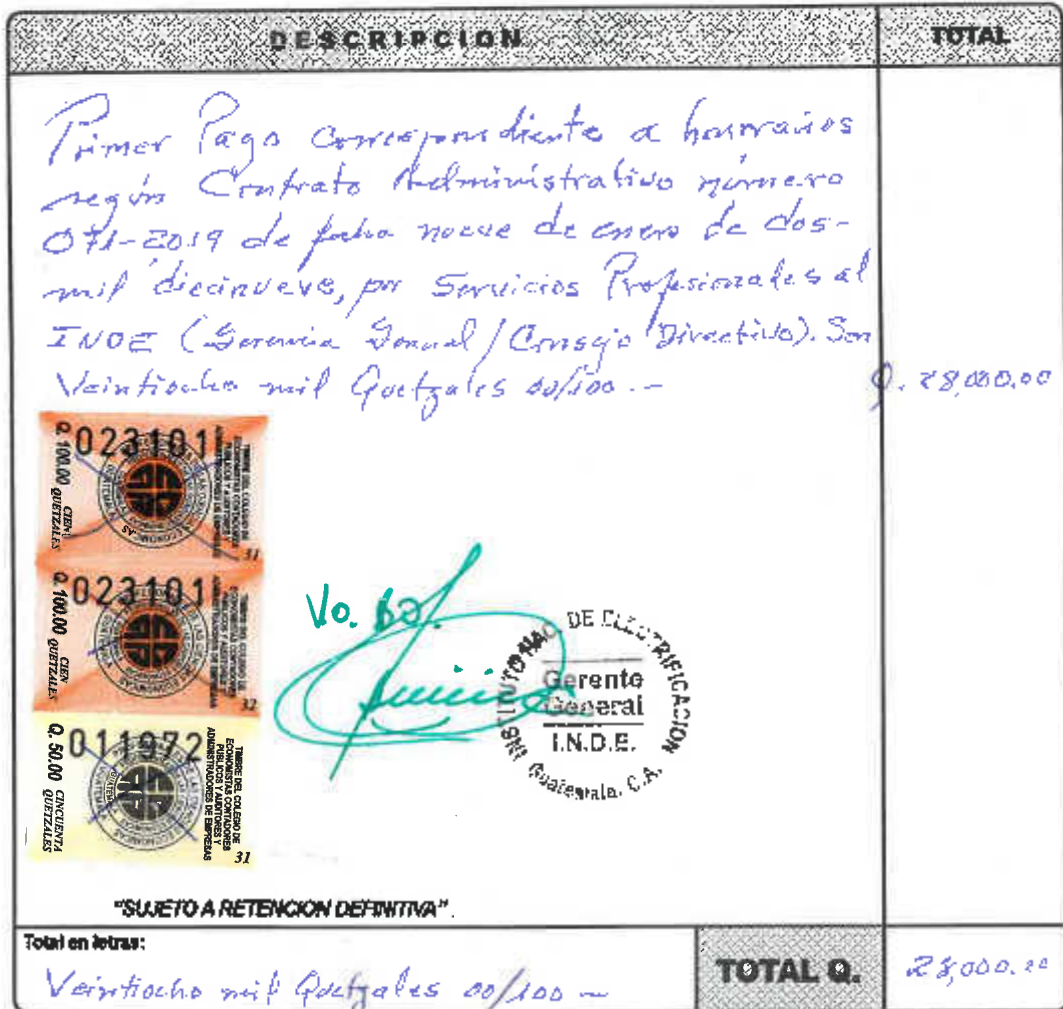 DESCRIPCION TOTAL
Primer Pago correspondiente a honorarios
según Contrato Administrativo número
071-2019 de fecha nueve de enero de dos-
mil diecinueve, por Servicios Profesionales al
INDE (Gerencia General/Consejo Directivo). Son
Veintiocho mil Quetzales 00/100.- Q. 28,000.00
023101
Q. 100.00 CIEN QUETZALES
TIMBRE DEL COLEGIO DE
ECONOMISTAS CONTADORES
PUBLICOS Y AUDITORES Y
ADMINISTRADORES DE EMPRESAS
31
023101
Q. 100.00 CIEN QUETZALES
TIMBRE DEL COLEGIO DE
ECONOMISTAS CONTADORES
PUBLICOS Y AUDITORES Y
ADMINISTRADORES DE EMPRESAS
32
011972
Q. 50.00 CINCUENTA QUETZALES
TIMBRE DEL COLEGIO DE
ECONOMISTAS CONTADORES
PUBLICOS Y AUDITORES Y
ADMINISTRADORES DE EMPRESAS
31
Vo. Bo.
INSTITUTO NAC. DE ELECTRIFICACION
Gerente
General
I.N.D.E.
Guatemala, C.A.
"SUJETO A RETENCION DEFINITIVA".
Total en letras:
Veintiocho mil Quetzales 00/100 - TOTAL Q. 28,000.00